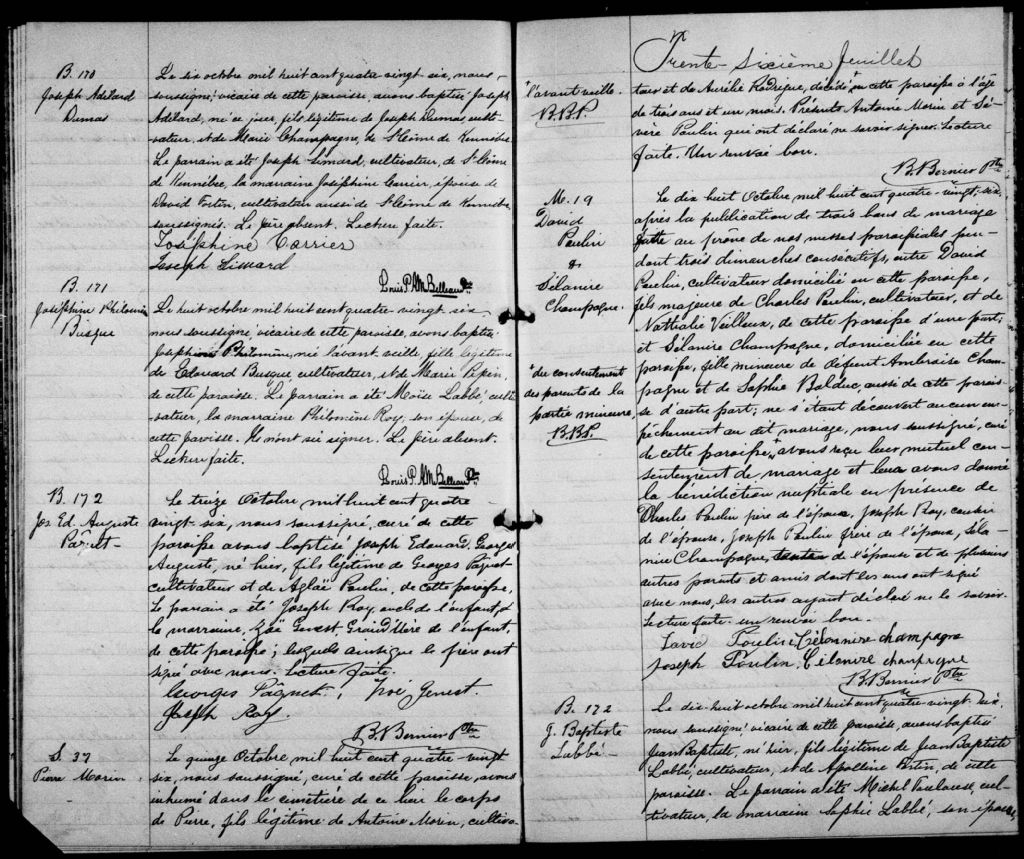 B. 170
Joseph Adélard
Dumas
Le six octobre mil huit cent quatre-vingt-six, nous
soussigné, vicaire de cette paroisse, avons baptisé Joseph
Adélard, né ce jour, fils légitime de Joseph Dumas, culti-
vateur, et de Marie Champagne, de St Côme de Kennébec.
Le parrain a été Joseph Simard, cultivateur, de St Côme
de Kennébec, la marraine Joséphine Carrier, épouse de
David Fortin, cultivateur aussi de St Côme de Kennébec
soussignés. Le père absent. Lecture faite.
Joséphine Carrier
Joseph Simard
Louis P. A. M. Belleau Ptre
B. 171
Joséphine Philomène
Busque
Le huit octobre mil huit cent quatre-vingt-six
nous soussigné vicaire de cette paroisse, avons baptisé
Joséphine Philomène, née l'avant veille, fille légitime
de Edouard Busque cultivateur, et de Marie Pépin,
de cette paroisse. Le parrain a été Moïse Labbé culti-
vateur, la marraine Philomène Roy, son épouse, de
cette paroisse. Ils n'ont su signer. Le père absent.
Lecture faite.
Louis P. A. M. Belleau Ptre
B. 172
Jos. Ed. Auguste
Paquet
Le treize Octobre mil huit cent quatre-
vingt-six, nous soussigné, curé de cette
paroisse avons baptisé Joseph Edouard Georges
Auguste, né hier, fils légitime de Georges Paquet
cultivateur et de Aglaë Poulin, de cette paroisse.
Le parrain a été Joseph Roy, oncle de l'enfant, &
la marraine, Zoë Genest, Grand'Mère de l'enfant,
de cette paroisse; lesquels ainsi que le père ont
signé avec nous. Lecture faite.
Georges Pâquet, Zoé Genest.
Joseph Roy.
B. Bernier Ptre
S. 37
Pierre Morin
Le quinze Octobre mil huit cent quatre-vingt
six, nous soussigné, curé de cette paroisse, avons
inhumé dans le cimetière de ce lieu le corps
de Pierre, fils légitime de Antoine Morin, cultiva-
Trente-Sixième feuillet
+ l'avant veille.
B.B.P.
teur et de Aurélie Rodrigue, décédé + en cette paroisse à l'âge
de trois ans et un mois. Présents Antoine Morin et Sé-
vère Poulin qui ont déclaré ne savoir signer. Lecture
faite. Un renvoi bon.
B. Bernier Ptre
M. 19
David
Poulin
&
Célanire
Champagne
Le dix huit Octobre mil huit cent quatre-vingt-six,
après la publication de trois bans de mariage
faite au prône de nos messes paroissiales pen-
dant trois dimanches consécutifs, entre David
Poulin, cultivateur domicilié en cette paroisse,
fils majeur de Charles Poulin, cultivateur, et de
Nathalie Veilleux, de cette paroisse d'une part;
et Célanire Champagne, domiciliée en cette
paroisse, fille mineure de défunt Ambroise Cham-
pagne et de Sophie Balduc, aussi de cette parois-
se d'autre part; ne s'étant découvert aucun em-
pêchement au dit mariage, nous soussigné, curé
de cette paroisse, + avons reçu leur mutuel con-
sentement de mariage et leur avons donné
la bénédiction nuptiale en présence de
Charles Poulin père de l'époux, Joseph Roy, cousin
de l'épouse, Joseph Poulin frère de l'époux, Céla-
nie Champagne, tante de l'épouse et de plusieurs
autres parents et amis dont les uns ont signé
avec nous, les autres ayant déclaré ne le savoir.
Lecture faite. un renvoi bon.
+ du consentement
des parents de la
partie mineure,
B.B.P.
David Poulin, Célenire champagne
Joseph Poulin, Célenire champagne
B. Bernier Ptre
B. 172
J. Baptiste
Labbé
Le dix-huit octobre mil huit cent quatre-vingt-six
nous soussigné vicaire de cette paroisse, avons baptisé
Jean Baptiste, né hier, fils légitime de Jean Baptiste
Labbé, cultivateur, et de Apolline Fortin, de cette
paroisse. Le parrain a été Michel Toulouse, cul-
tivateur, la marraine Sophie Labbé, son épouse,